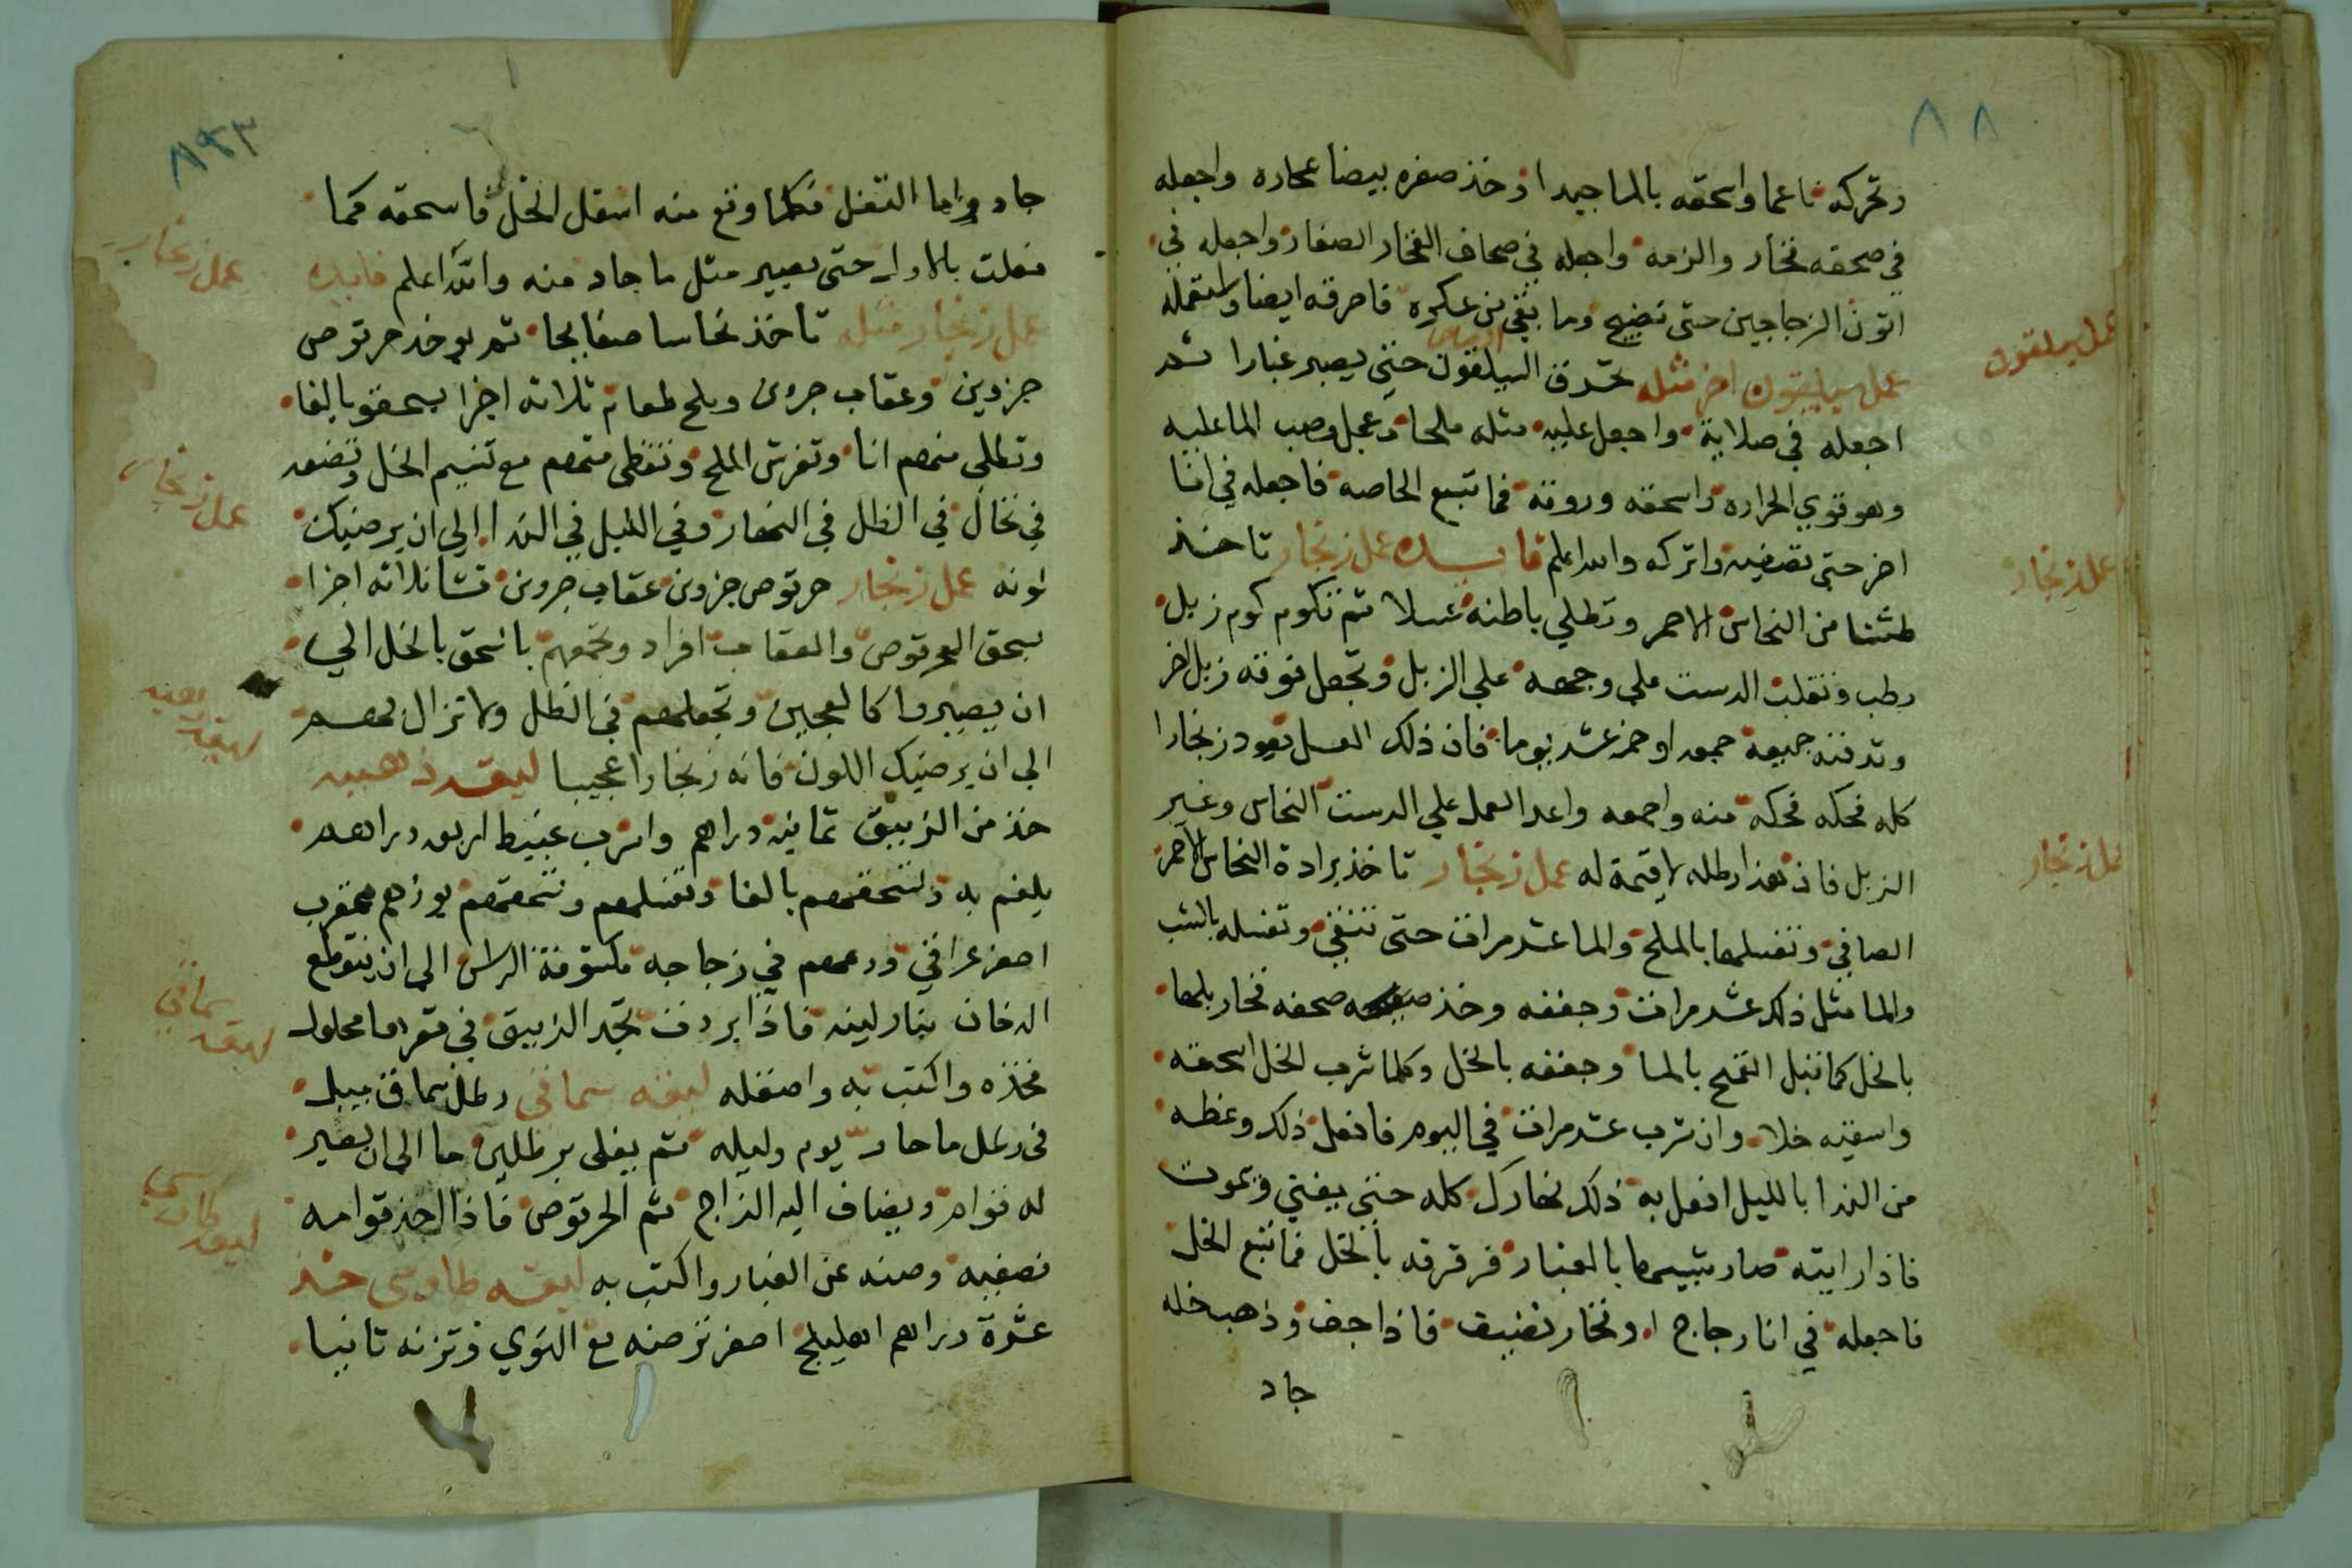 ٨٨
وتحركه ناعما واسحقه بالما جيدا وخذ صفره بيضا عجاره واجعله
في صحفه فخار والزمه واجعله في صحاف الفخار الصغار واجعله في
اتون الزجاجين حتى تضيج وما بقي من عكره فاحرقه ايضا واستعمله
عمل سيليقون اخر مثله تحرق السيلقون حتى يصير غبارا ثم
اجعله في صلاية واجعل عليه مثله ملحا وعجل وصب الما عليه
وهو قوي الحراره واسحقه وروقه فما تبع الخاصه فاجعله في انا
اخر حتى تصفيه واتركه والله اعلم فايده عمل زنجار تاخذ
طشتا من النحاس الاحمر وتطلي باطنه عسلا ثم تكوم كوم زبل
رطب وتقلب الدست على وجهه على الزبل وتجعل فوقه زبل اخر
وتدفنه جميعه جمعه او خمسة عشر يوما فان ذلك العسل يعود زنجارا
كله فحكه فحكه منه واجمعه واعد العمل علي الدست النحاس وغير
الزبل فان هذا رطله لا قيمة له عمل زنجار تاخذ برادة النحاس الاحمر
الصافي وتغسلها بالملح والما عشر مرات حتى تنقي وتغسله بالشب
والما مثل ذلك عشر مرات وجففه وخذ صحفه فخار بلها
بالخل كما تبل القمح بالما وجففه بالخل وكلما شرب الخل اسحقه
واسقيه خلا وان شرب عشر مرات في اليوم فافعل ذلك وغطه
من الندا بالليل افعل به ذلك نهارك كله حتى يفني ويموت
فاذا رايته صار شبيها بالغبار فرقرقه بالخل فما تبع الخل
فاجعله في انا زجاج او فخار نضيف فاذا جف وذهب خله
جاد
عمل سيلقون
عمل زنجار
عمل زنجار
٨٩
جاد واما التفل فكلما وقع منه اسفل الخل فاسحقه كما
فعلت بالاول حتى يصير مثل ما جاد منه والله اعلم فايده
عمل زنجار مثله تاخذ نحاسا صفايحا ثم يوخذ حرتوص
جزوين وعقاب جزوين وملح طعام ثلاثه اجزا يسحقو بالغا
وتطلي منهم انا وتفرش الملح وتغطى منهم مع تنسيم الخل وتضعه
في نخال في الظل في النهار وفي الليل في الندا الي ان يرضيك
لونه عمل زنجار حرتوص جزوين عقاب جزوين نشا ثلاثه اجزا
يسحق الحرتوص والعقاب افراد وتجمعهم بالسحق بالخل الي
ان يصيروا كالعجين وتجعلهم في الظل ولا تزال بهم
الى ان يرضيك اللون فانه زنجارا عجيبا ليقه ذهبيه
خذ من الزيبق ثمانيه دراهم واشرب عبيط اربعه دراهم
يلغم به وتسحقهم بالغا وتغسلهم وتسحقهم بوزهم عقرب
اصفر عراقي ودعهم في زجاجه مكشوفة الراس الى ان ينقطع
الدخان بنار لينه فاذا بردت تجد الزيبق في قعرها محلول
فخذه واكتب به واصقله ليقه سماقي رطل سماق يبل
في رطل ما حار يوم وليله ثم يغلى برطلين ما الى ان يصير
له قوام ويضاف اليه الزاج ثم الحرتوص فاذا اخذ قوامه
تصفيه وصنه عن الغبار واكتب به ليقه طاوسي خذ
عشرة دراهم اهليلج اصفر ترضه مع النوي وتزنه ثانيا
عمل زنجار
عمل زنجار
ليقه ذهبيه
ليقه سماقي
ليقه طاوسي